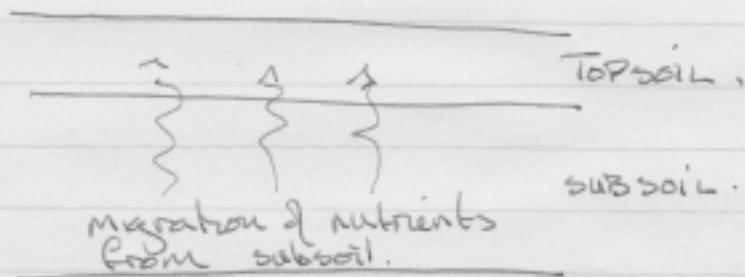 TOPSOIL.
SUBSOIL.
migration of nutrients
from subsoil.